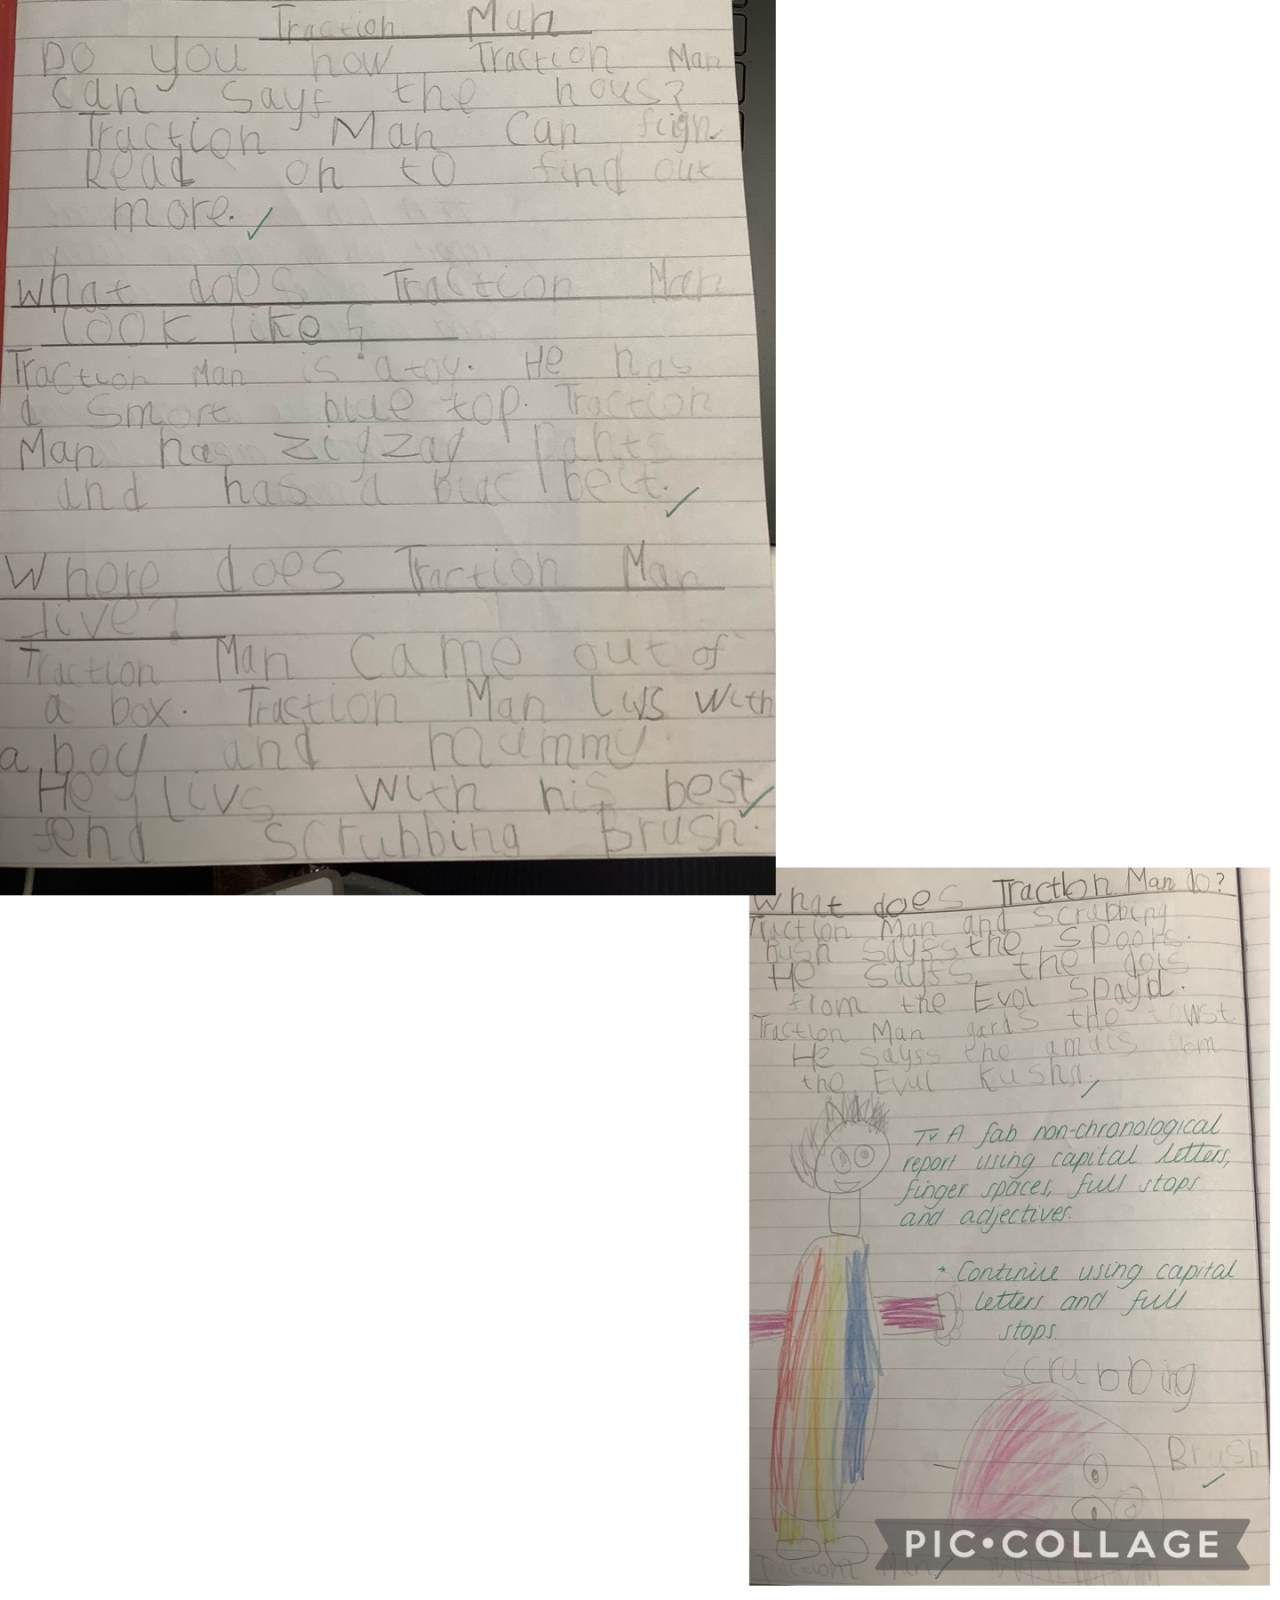 Traction Man
Do you how Traction Man
can sayf the hous?
Traction Man can
Read on to find out
more.
What does Traction Man
look like?
Traction Man is a toy. He has
a smart blue top. Traction
Man has zigzag pants
and has a blac belt.
Where does Traction Man
live?
Traction Man came out of
a box. Traction Man livs with
a boy and mummy.
He livs with his best
fend Scrubbing Brush.
What does Traction Man do?
Traction Man and Scrubbing
Bush sayss the spoons.
He sayss the dois
from the Evol
Traction Man gards the towst.
He sayss the
the Evul
Tv A fab non-chronological
report using capital letters,
finger spaces, full stops
and adjectives.
* Continue using capital
letters and full
stops.
Scrubbing
Brush
Traction Man
PIC•COLLAGE